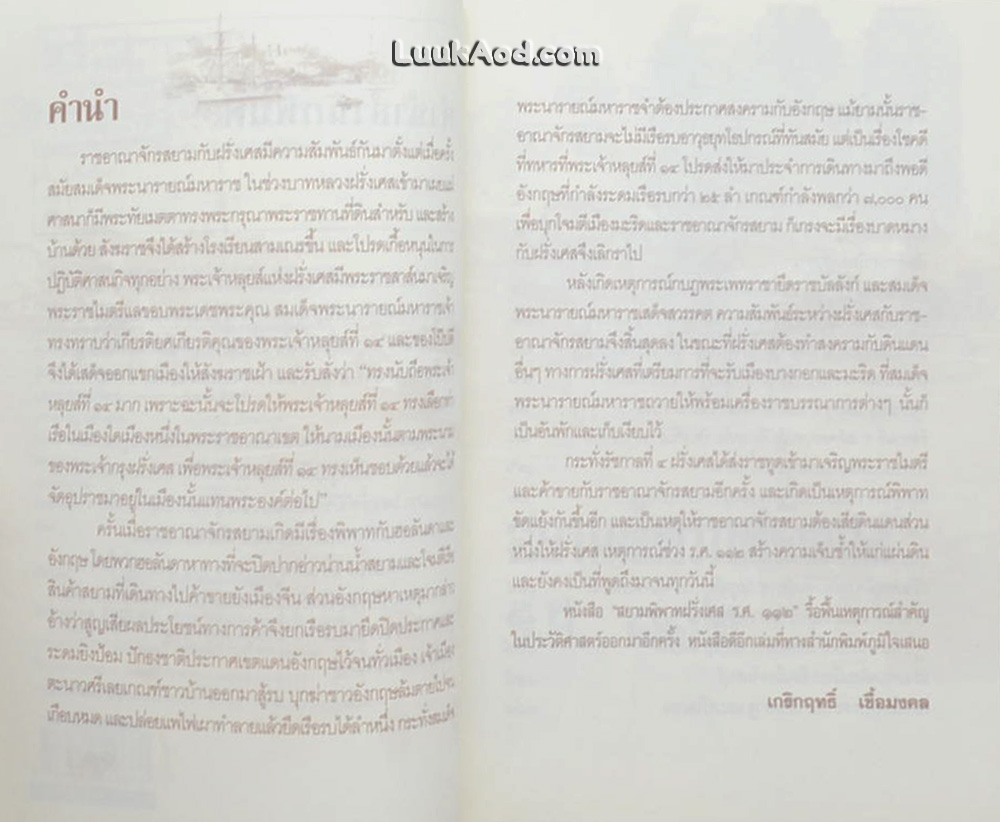 LuukAod.com
คำนำ
ราชอาณาจักรสยามกับฝรั่งเศสมีความสัมพันธ์กันมาตั้งแต่เมื่อครั้ง
สมัยสมเด็จพระนารายณ์มหาราช ในช่วงบาทหลวงฝรั่งเศสเข้ามาเผยแผ่
ศาสนาก็มีพระทัยเมตตาทรงพระกรุณาพระราชทานที่ดินสำหรับ และสร้าง
บ้านด้วย สังฆราชจึงได้สร้างโรงเรียนสามเณรขึ้น และโปรดเกื้อหนุนในการ
ปฏิบัติศาสนกิจทุกอย่าง พระเจ้าหลุยส์แห่งฝรั่งเศสมีพระราชสาส์นมาเจริญ
พระราชไมตรีแลขอบพระเดชพระคุณ สมเด็จพระนารายณ์มหาราชเจ้า
ทรงทราบว่าเกียรติยศเกียรติคุณของพระเจ้าหลุยส์ที่ ๑๔ และของโป๊ปดี
จึงได้เสด็จออกแขกเมืองให้สังฆราชเฝ้า และรับสั่งว่า “ทรงนับถือพระเจ้า
หลุยส์ที่ ๑๔ มาก เพราะฉะนั้นจะโปรดให้พระเจ้าหลุยส์ที่ ๑๔ ทรงเลือกท่า
เรือในเมืองใดเมืองหนึ่งในพระราชอาณาเขต ให้นามเมืองนั้นตามพระนาม
ของพระเจ้ากรุงฝรั่งเศส เพื่อพระเจ้าหลุยส์ที่ ๑๔ ทรงเห็นชอบด้วยแล้วจะได้
จัดอุปราชมาอยู่ในเมืองนั้นแทนพระองค์ต่อไป”
ครั้นเมื่อราชอาณาจักรสยามเกิดมีเรื่องพิพาทกับฮอลันดาและ
อังกฤษ โดยพวกฮอลันดาหาทางที่จะปิดปากอ่าวน่านน้ำสยามและโจมตีเรือ
สินค้าสยามที่เดินทางไปค้าขายยังเมืองจีน ส่วนอังกฤษหาเหตุมากล่าว
อ้างว่าสูญเสียผลประโยชน์ทางการค้าจึงยกเรือรบมายึดปิดประกาศและ
ระดมยิงป้อม ปักธงชาติประกาศเขตแดนอังกฤษไว้จนทั่วเมือง เจ้าเมือง
ตะนาวศรีเลยเกณฑ์ชาวบ้านออกมาสู้รบ บุกฆ่าชาวอังกฤษล้มตายไปจน
เกือบหมด และปล่อยแพไฟเผาทำลายแล้วยึดเรือรบได้ลำหนึ่ง กระทั่งสมเด็จ
พระนารายณ์มหาราชจำต้องประกาศสงครามกับอังกฤษ แม้ยามนั้นราช-
อาณาจักรสยามจะไม่มีเรือรบอาวุธยุทโธปกรณ์ที่ทันสมัย แต่เป็นเรื่องโชคดี
ที่ทหารที่พระเจ้าหลุยส์ที่ ๑๔ โปรดส่งให้มาประจำการเดินทางมาถึงพอดี
อังกฤษที่กำลังระดมเรือรบกว่า ๒๕ ลำ เกณฑ์กำลังพลกว่า ๗,๐๐๐ คน
เพื่อบุกโจมตีเมืองมะริดและราชอาณาจักรสยาม ก็เกรงจะมีเรื่องบาดหมาง
กับฝรั่งเศสจึงเลิกราไป
หลังเกิดเหตุการณ์กบฏพระเพทราชายึดราชบัลลังก์ และสมเด็จ
พระนารายณ์มหาราชเสด็จสวรรคต ความสัมพันธ์ระหว่างฝรั่งเศสกับราช-
อาณาจักรสยามจึงสิ้นสุดลง ในขณะที่ฝรั่งเศสต้องทำสงครามกับดินแดน
อื่นๆ ทางการฝรั่งเศสที่เตรียมการที่จะรับเมืองบางกอกและมะริด ที่สมเด็จ
พระนารายณ์มหาราชถวายให้พร้อมเครื่องราชบรรณาการต่างๆ นั้นก็
เป็นอันพักและเก็บเงียบไว้
กระทั่งรัชกาลที่ ๔ ฝรั่งเศสได้ส่งราชทูตเข้ามาเจริญพระราชไมตรี
และค้าขายกับราชอาณาจักรสยามอีกครั้ง และเกิดเป็นเหตุการณ์พิพาท
ขัดแย้งกันขึ้นอีก และเป็นเหตุให้ราชอาณาจักรสยามต้องเสียดินแดนส่วน
หนึ่งให้ฝรั่งเศส เหตุการณ์ช่วง ร.ศ. ๑๑๒ สร้างความเจ็บช้ำให้แก่แผ่นดิน
และยังคงเป็นที่พูดถึงมาจนทุกวันนี้
หนังสือ “สยามพิพาทฝรั่งเศส ร.ศ. ๑๑๒” รื้อฟื้นเหตุการณ์สำคัญ
ในประวัติศาสตร์ออกมาอีกครั้ง หนังสือดีอีกเล่มที่ทางสำนักพิมพ์ภูมิใจเสนอ
เกริกฤทธิ์ เชื้อมงคล